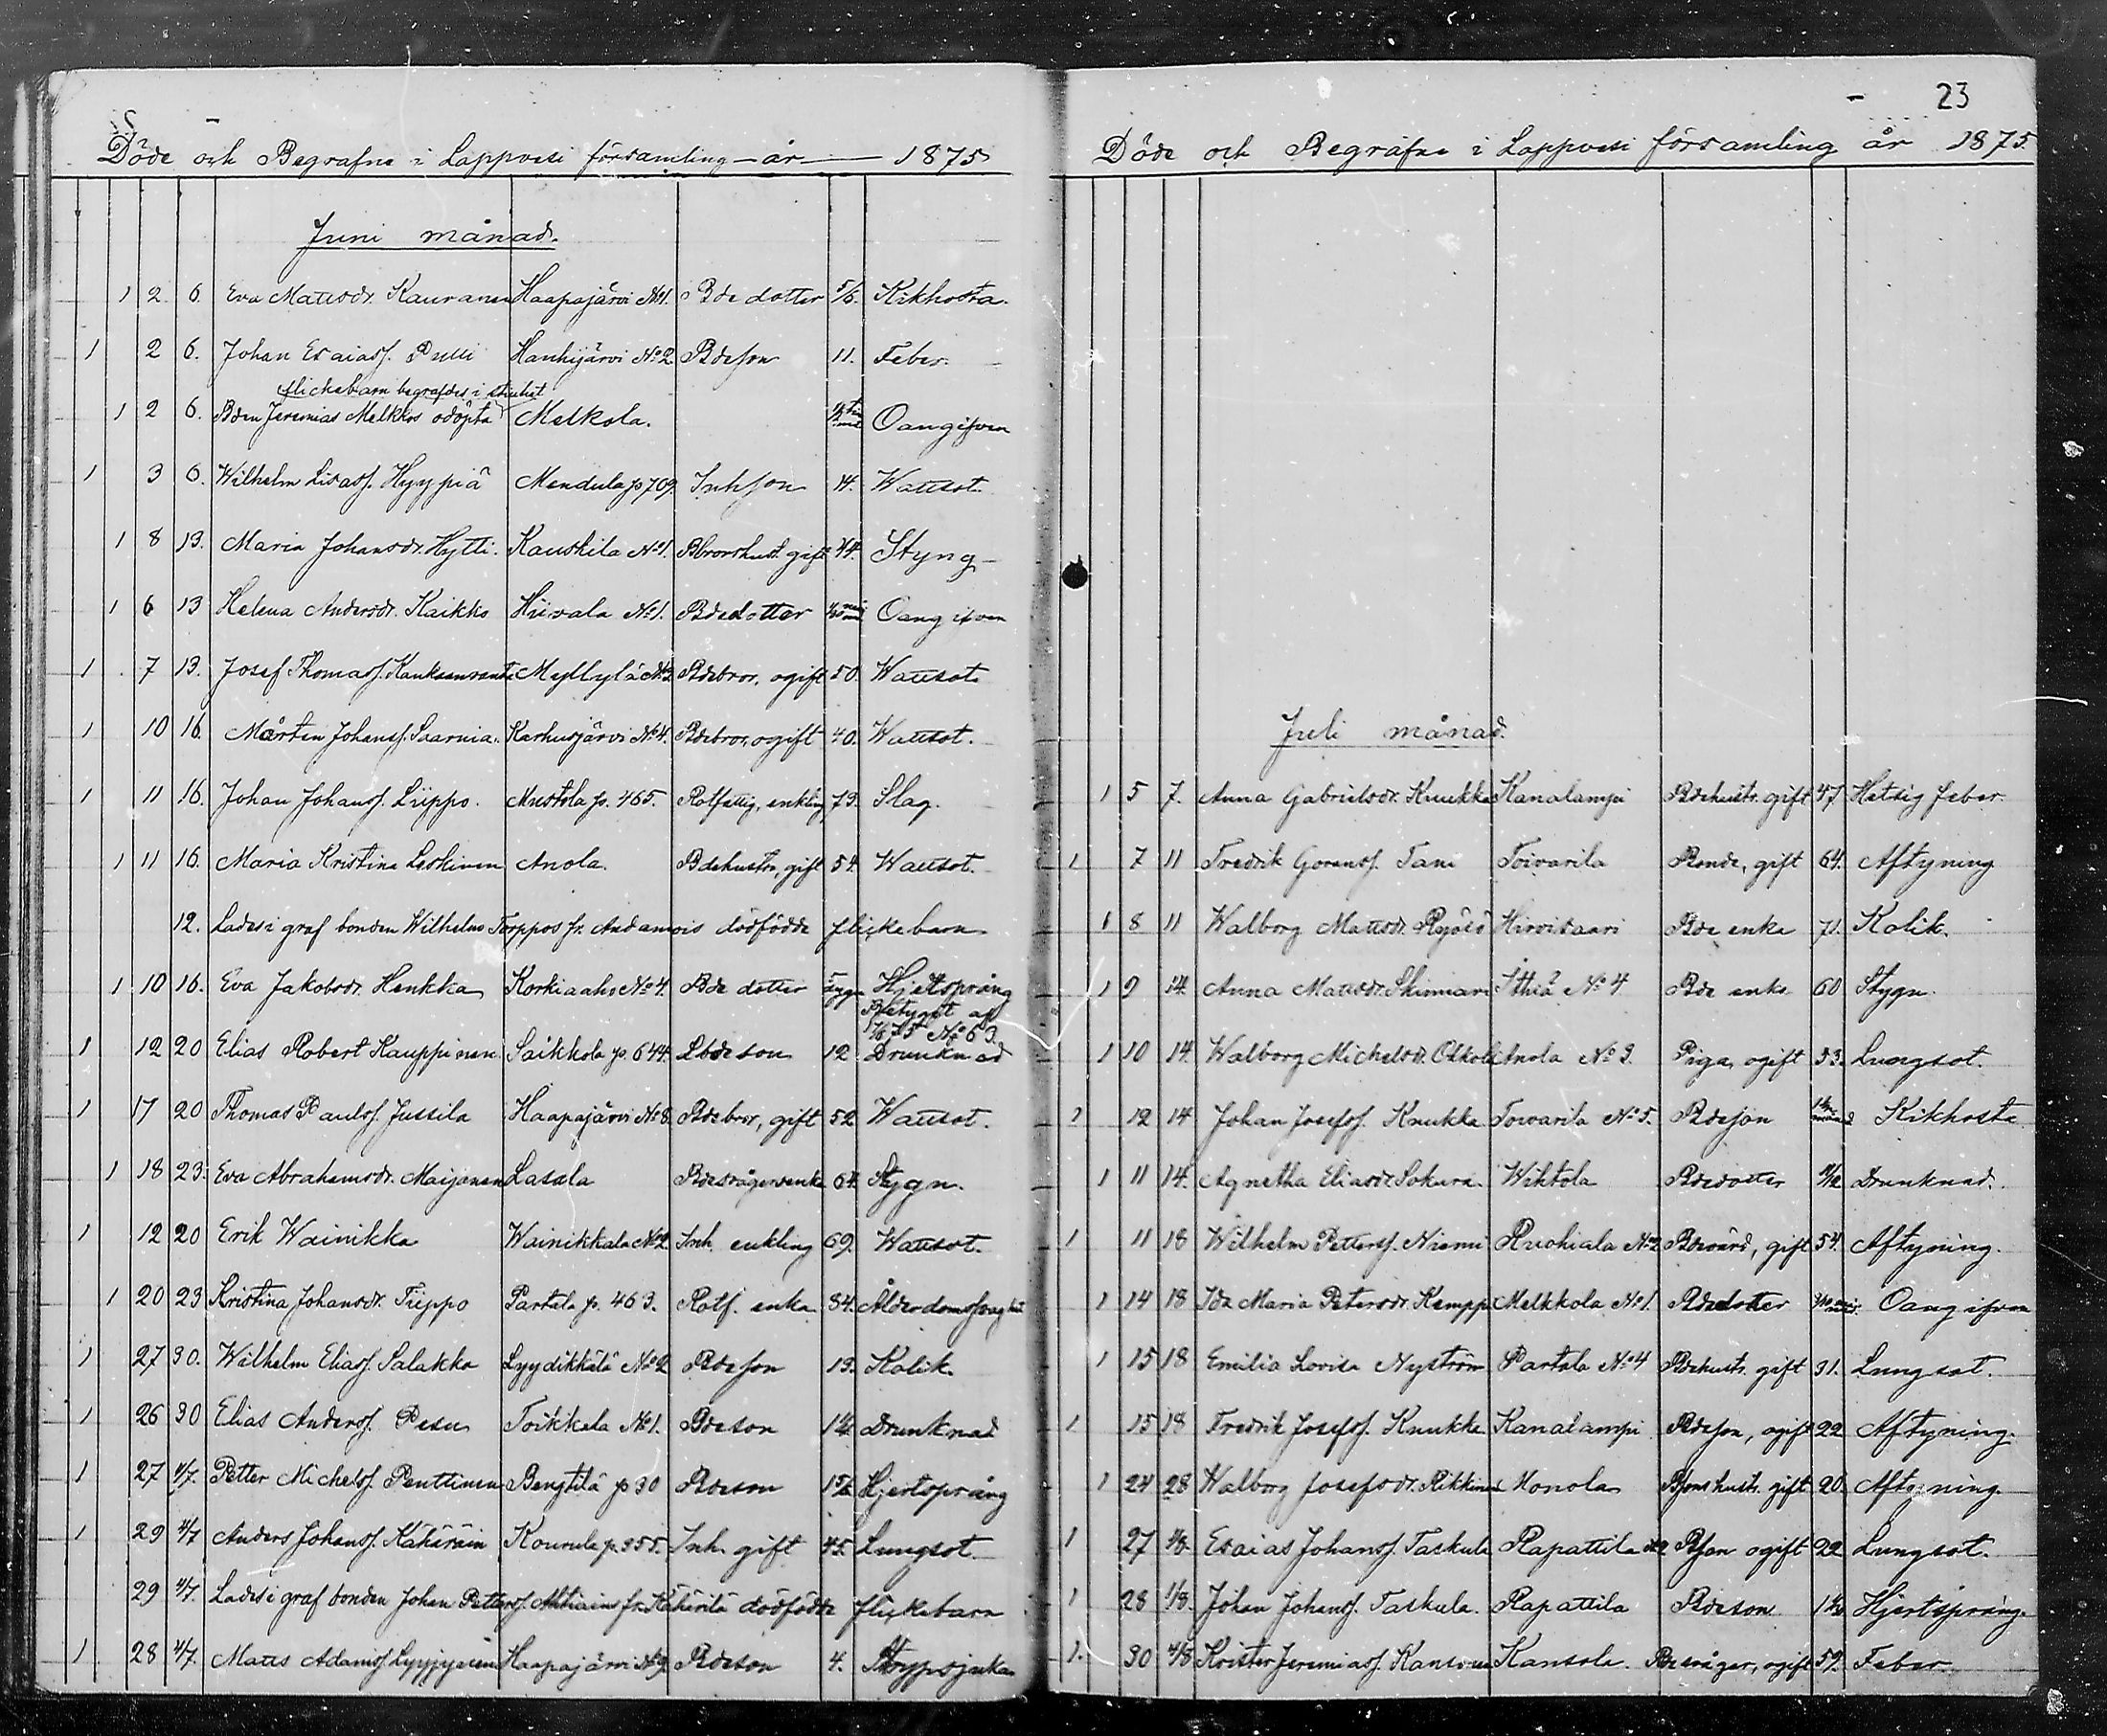 Döde och Begrafne i Lappvesi församling år 1875
Juni månad.
1 2 6. Eva Mattsdr. Kauranen Haapajärvi No 1. Bdedotter 5/6. Kikhosta.
1 2 6. Johan Esaiass. Pulli Hanhijärvi No 2 Bdeson 11. Feber.
flickebarn begrafdes i stillhet
1 2 6. Bden Jeremias Melkkos odöpta Melkola. Oangifven
1 3 6. Wilhelm Lisass. Hyypiä Mendula p 709. Inhson 14. Wattsot.
1 8 13. Maria Johansdr. Hytti. Kauskila No 1. Bbrorshust. gift 44. Styng
1 6 13 Helena Andersdr. Kaikko Hiivala No 1. Bdedotter Oangifven
1 7 13. Josef Thomass. Kauksenranta Myllylä No 2 Bdebror, ogift 50. Wattsot.
1 10 16. Mårten Johanss. Saarnia. Karhusjärvi No 4. Bdebror, ogift 40. Wattsot.
1 11 16. Johan Johanss. Liippo. Mustola p. 465. Rotfattig, enkling 73. Slag.
1 11 16. Maria Kristina Leskinen Anola. Bdehustr, gift 54. Wattsot.
12. Lades i graf bonden Wilhelms Torppos fr. dödfödde flickebarn
1 10 16. Eva Jakobsdr. Henkka Korkiaaho No 4. Bdedotter Hjertsprång
Betyget af
No 63.
1 12 20 Elias Robert Kauppinen Saikkola p. 644. Lbdeson 12 Drunknad
1 17 20 Thomas Paulss. Jussila Haapajärvi No 8 Bdebror, gift 52 Wattsot.
1 18 23. Eva Abrahamsdr. Maijanen Lasola Bdesvågersenka 64. Stygn.
1 12 20 Erik Wainikka Wainikkala No 2 Inh. enkling 69. Wattsot.
1 20 23 Kristina Johansdr. Tieppo Partala p. 463. Rotf. enka 84. Ålderdomssvaghet
1 27 30. Wilhelm Eliass. Salakka Lyydikkälä No 2 Bdeson 13. Kolik.
1 26 30 Elias Anderss. Pesu Toikkala No 1. Bdeson 14. Drunknad
1 27 4/7. Petter Michelss. Penttinen Bengtilä p 30 Bdeson Hjertsprång
1 29 4/7 Anders Johanss. Kähäräin Kourula p. 355. Inh. gift 45. Lungsot.
29 4/7. Lades i graf bonden Johan Petterss. Ahtiains fr. Kähärilä dödfödde flickebarn
1 28 4/7. Matts Adamss. Lyyjyinen Haapajärvi No 9. Bdeson 4. Strypsjuka
23
Döde och Begrafne i Lappvesi församling år 1875.
Juli månad.
1 5 7. Anna Gabrielsdr. Knukka Kanalampi Bdehustr. gift 47 Hetsig feber.
1 7 11 Fredrik Göranss. Tani Toivarila Bonde, gift 64. Aftyning
1 8 11 Walborg Mattsdr. Hirvisaari Bde enka 71. Kolik.
1 9 14. Anna Mattsdr. Skinnari Ithiä No 4 Bde enka 60 Stygn
1 10 14. Walborg Michelsdr. Okkola Anola No 3. Piga, ogift 33. Lungsot.
1 12 14 Johan Josefss. Knukka Toivarila No 5. Bdeson Kikhosta
1 11 14. Agnetha Eliasdr. Sokura. Wihtola Bdedotter Drunknad.
1 11 18 Wilhelm Petterss. Niemi Ruohiala No 2 Bdevärd, gift 54. Aftyning.
1 14 18 Ida Maria Petersdr. Kemppi Melkkola No 1. Bdedotter Oangifven
1 15 18 Emilia Lovisa Nyström Partala No 4 Bdehustr. gift 31. Lungsot.
1 15 18 Fredrik Josefss. Knukka Kanalampi Bdeson, ogift 22 Aftyning.
1 24 28 Walborg Josefsdr. Rikkinen Monola Bsonshustr. gift 20. Aftyning
1 27 1/8 Esaias Johanss. Taskula Rapattila No 2 Bson ogift 22 Lungsot.
1 28 1/8. Johan Johanss. Taskula. Rapattila Bdeson Hjertsprång.
1. 30 4/8 Krister Jeremiass. Kansonen Kansola. Bdesvåger, ogift 59. Feber